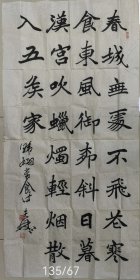 春城無處不飛花寒
食東風御柳斜日暮
漢宮吹蠟燭輕烟散
入五矦家
韓翃寒食
135/67